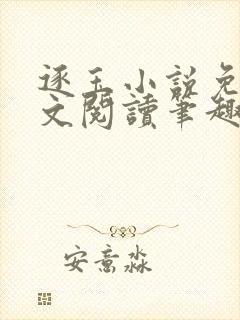 逐玉小説免
文閱讀筆趣
安意淼